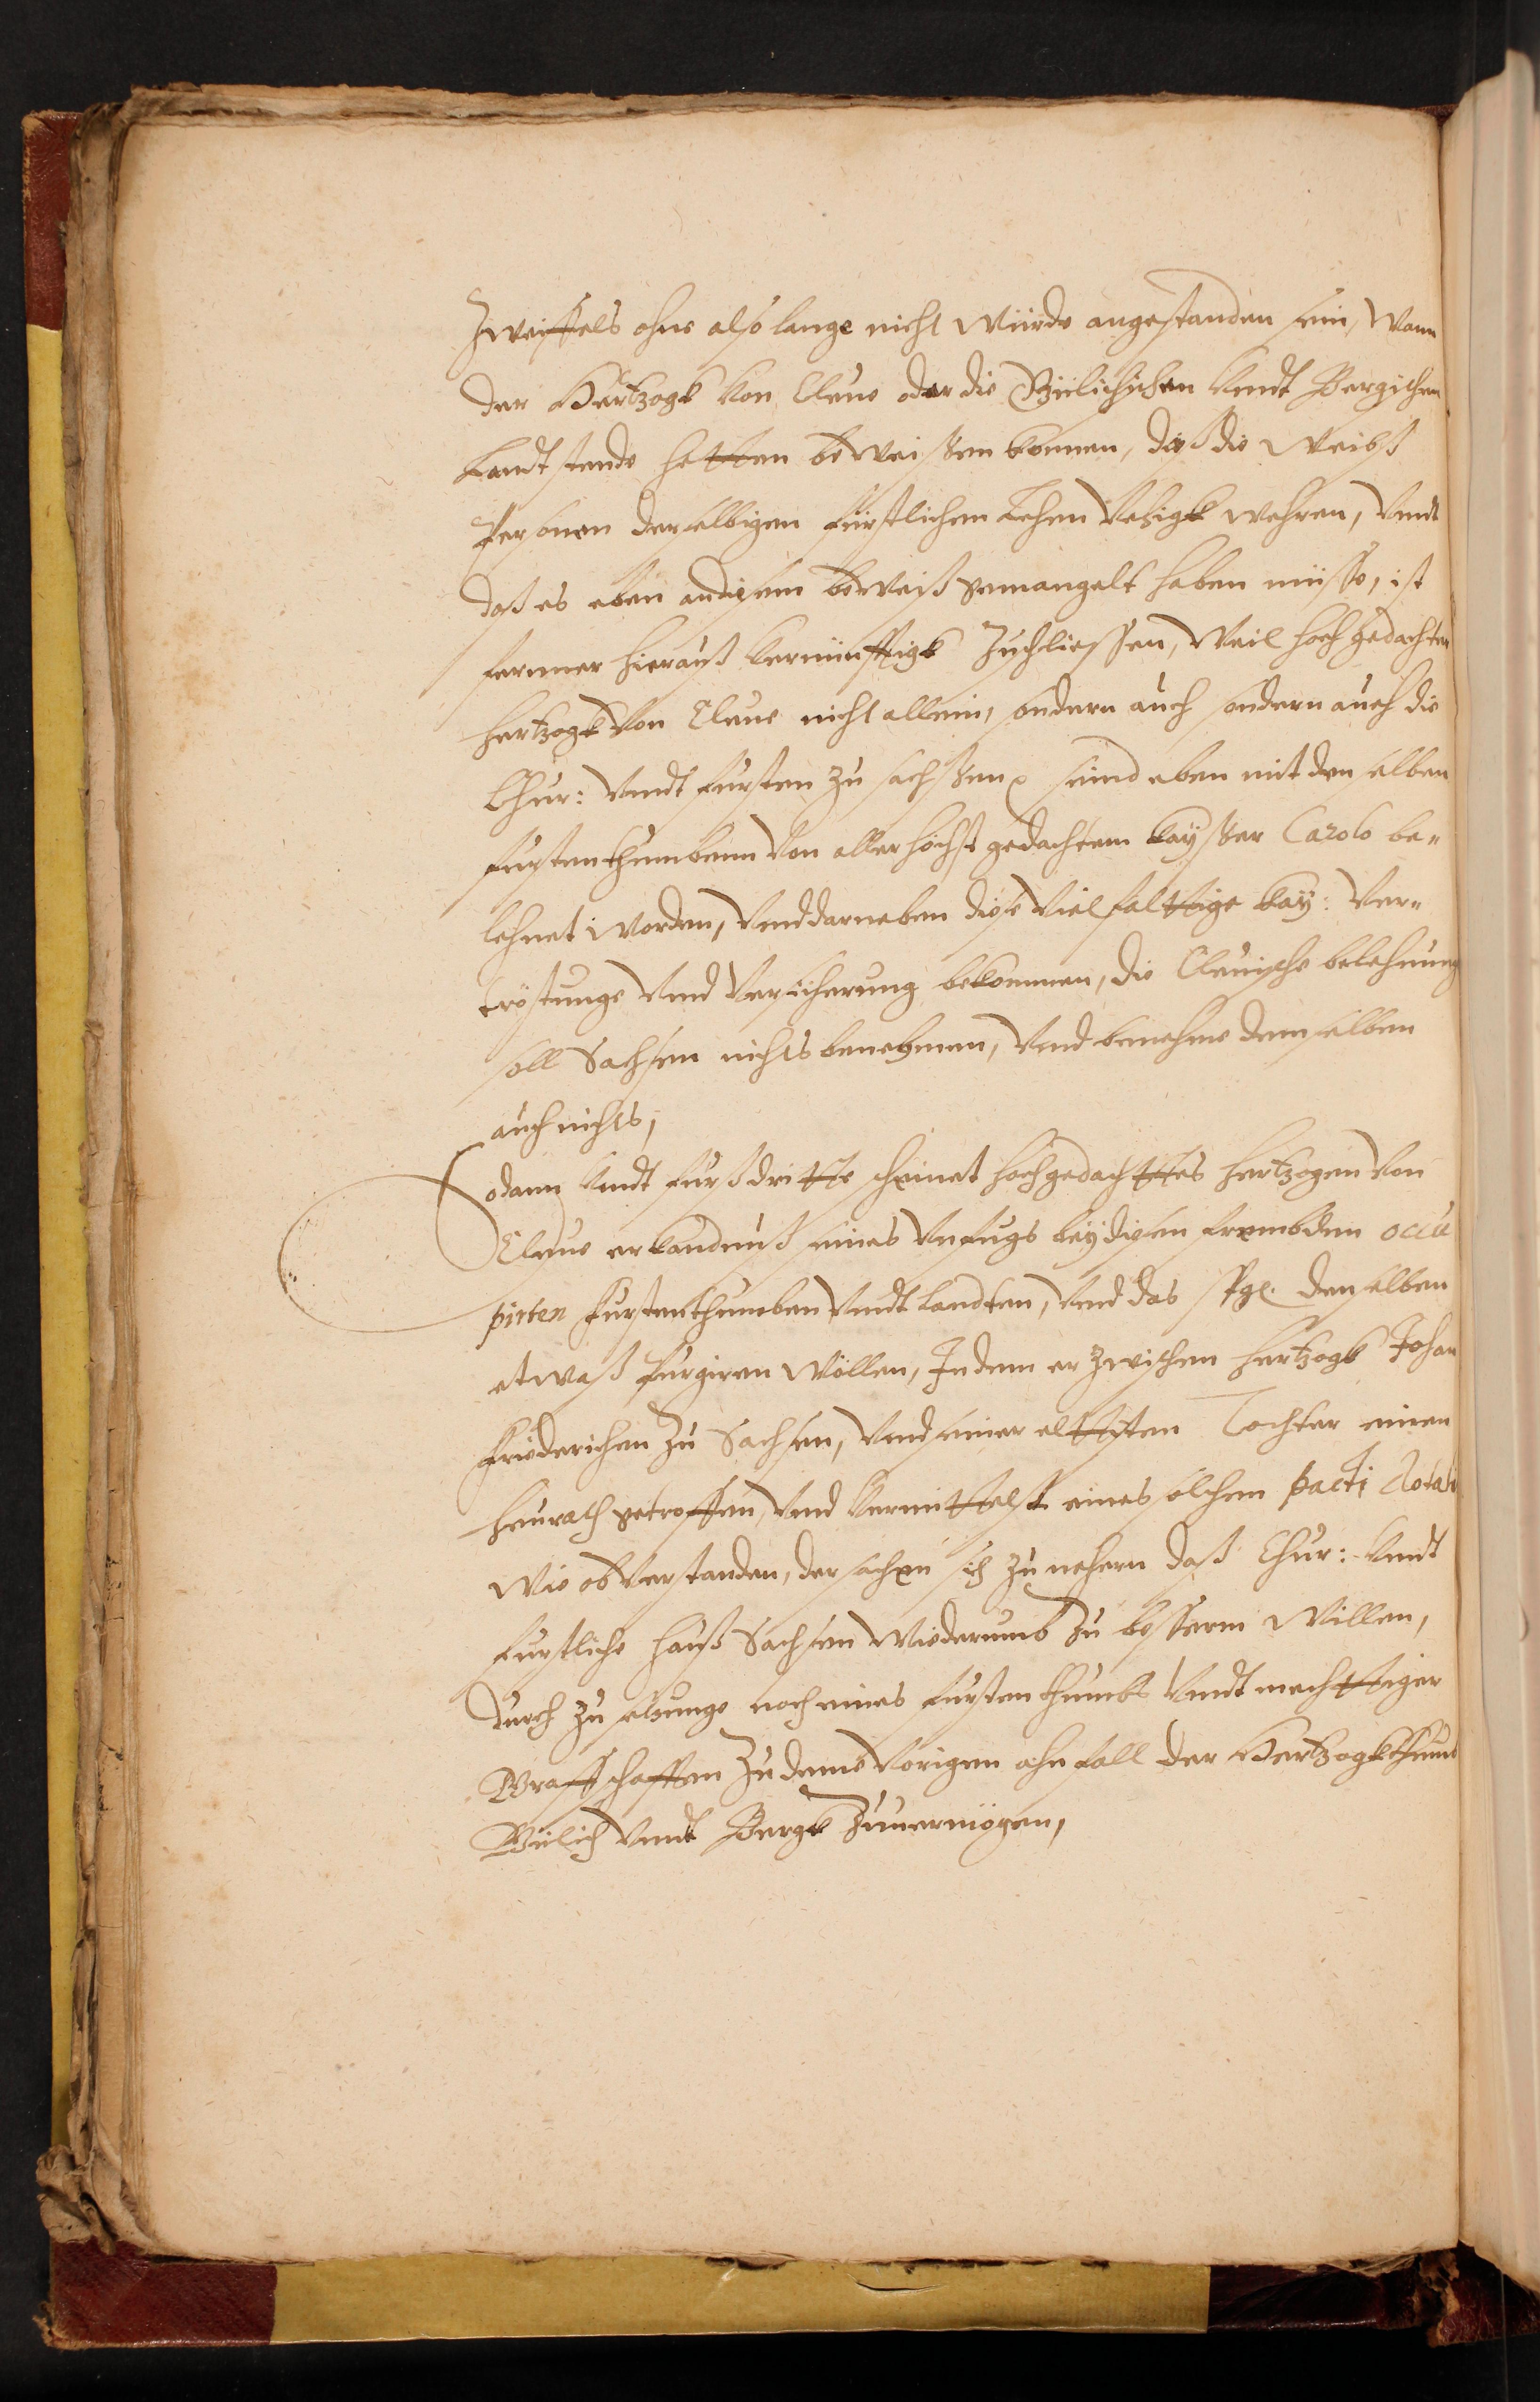 Zweiffels ohne also lange nicht würde angestanden sein, Wann
der Hertzogk von Cleue oder die Gülichischen vndt Bergischen
Landtstende hetten beweissen konnen, daß die Weibß
Personen derselbigen fürstlichen Lehen vehigk wehren, Vndt
daß es eben an disem beweiß gemangelt haben müsse, ist
ferrner hierauß vernünfftigk Zuschliessen, Weil hochgedachter
Hertzogk von Cleue nicht allein, sondern auch sondern auch die
Chur: Vndt fursten zu sachssen seind eben mit den selben
furstenthumbenn von allerhöchst gedachtem kaysser Carolo be„
lehnet worden, Vnd darneben diese vielfaltige kay: Ver„
tröstunge vnd versicherung bekommen, die Cleuische belehnung
soll Sachsen nichts benehmen, Vnd benehme demselben
auch nichts,
Sodann Vndt furß dritte scheinet hochgedachttes Hertzogen von
Cleue erkandtnuß seines Vnfugs bey disen frembden occu
pirten furstenthumben vndt Landten, Vnd das sfgl. denselben
etwaß purgiren wöllen, In dem er zwischen Hertzogk Johan
Friderichen zu Sachsen, Vnd seiner eltisten Tochter einen
Heurath getroffen, Vnd vermittelst eines solchen pacti dotali
Wie obverstanden, der sachen sich zu nehern daß Chur: Vndt
furstliche hauß Sachsen wiederumb zu besserm Willen,
durch zu setzunge noch eines furstenthumbs vndt mechttiger
Graffschafften Zu deme vorigen ahnfall der Hertzogkthumb
Gülich vndt Bergk Zuuermögen,